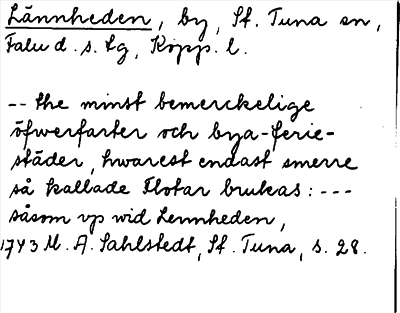 Lännheden, by, St. Tuna sn,
Falu d. s. lg, Kopp. l.
-- the minst bemerckelige
öfwerfarter och bya-ferie-
städer, hwarest endast smerre
så kallade Flotar brukas: ---
såsom vp wid Lennheden,
1743 M. A. Sahlstedt, St. Tuna, s. 28.